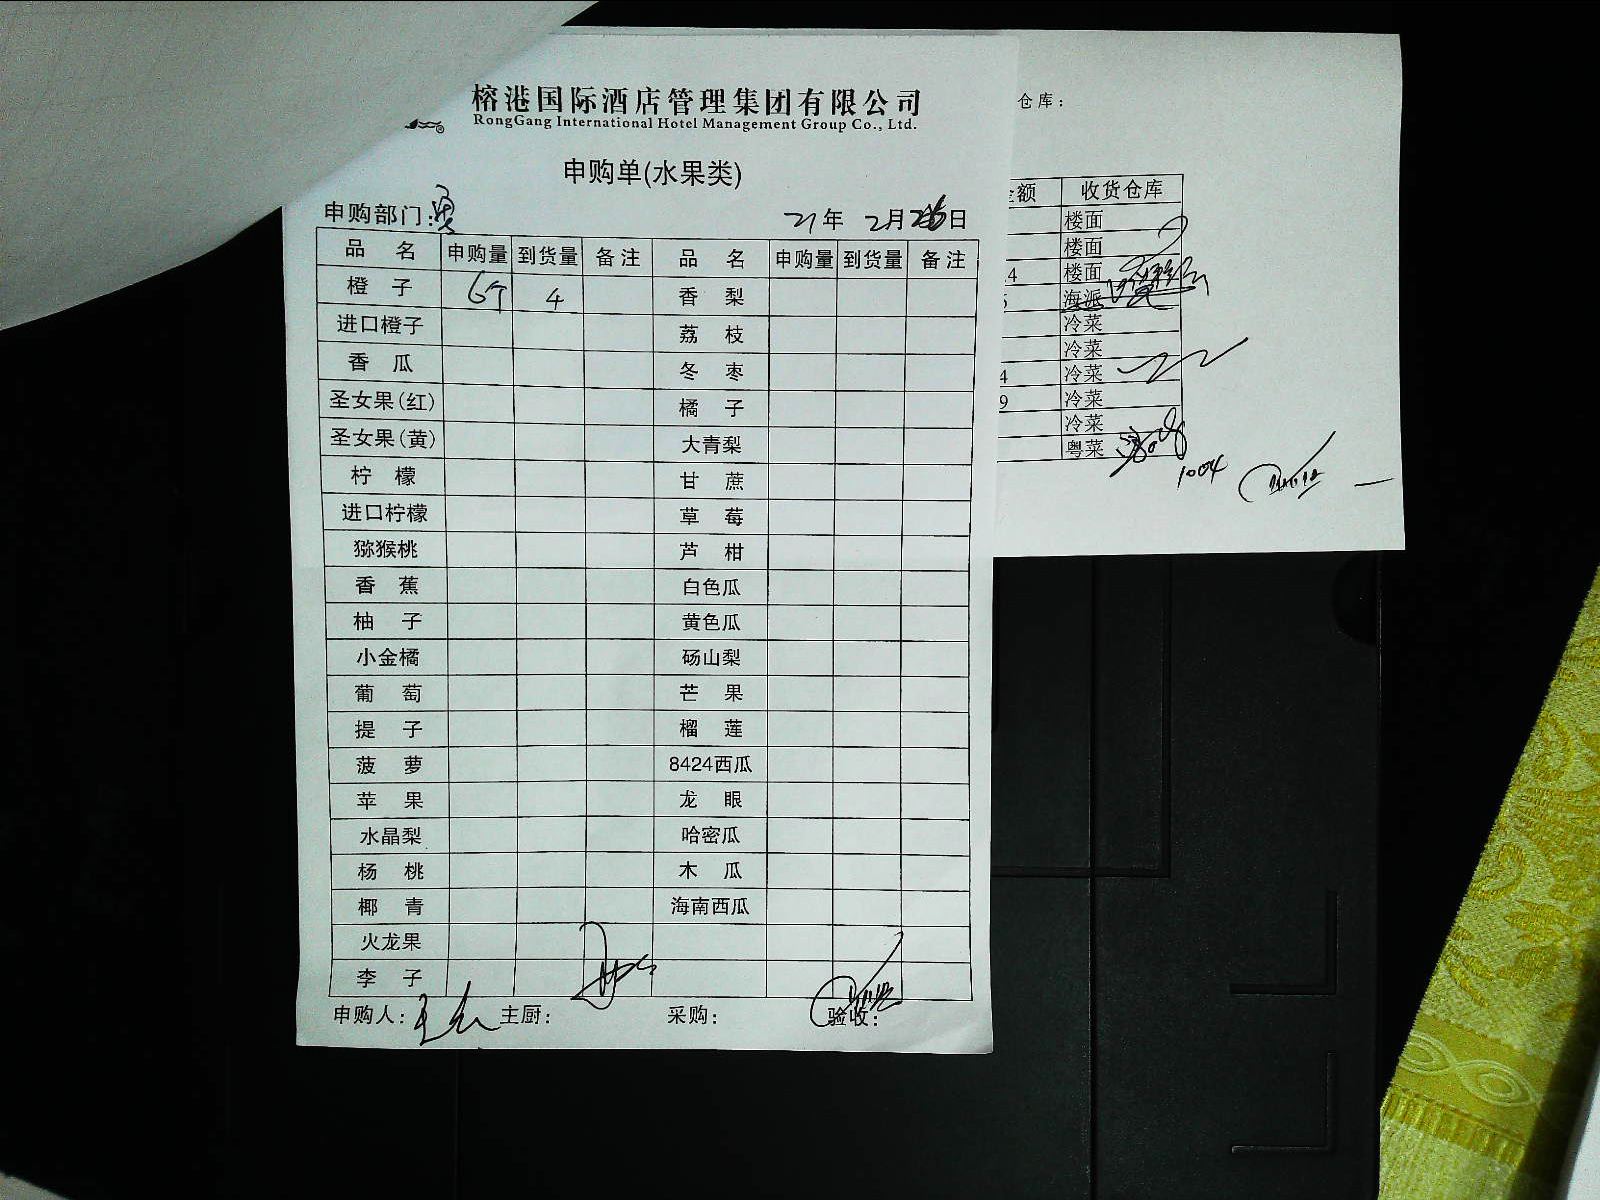 榕港国际酒店管理集团有限公司
RongGang International Hotel Management Group Co., Ltd.
申购单(水果类)
申购部门: 21年 2月 日
品 名 申购量 到货量 备注 品 名 申购量 到货量 备注
橙 子 6个 4 香 梨
进口橙子 荔 枝
香 瓜 冬 枣
圣女果(红) 橘 子
圣女果(黄) 大青梨
柠 檬 甘 蔗
进口柠檬 草 莓
猕猴桃 芦 柑
香 蕉 白色瓜
柚 子 黄色瓜
小金橘 砀山梨
葡 萄 芒 果
提 子 榴 莲
菠 萝 8424西瓜
苹 果 龙 眼
水晶梨 哈密瓜
杨 桃 木 瓜
椰 青 海南西瓜
火龙果
李 子
申购人: 主厨: 采购: 验收:
仓库:
额 收货仓库
楼面
楼面
4 楼面
海派
冷菜
冷菜
4 冷菜
9 冷菜
冷菜
粤菜
1004